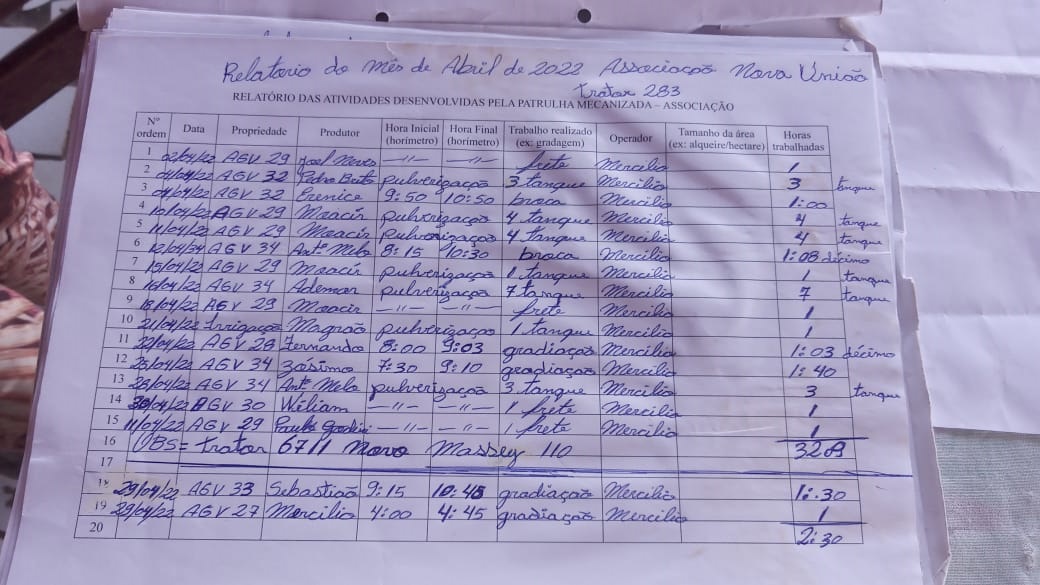 Relatorio do Mês de Abril de 2022 Associação Nova União
trator 283
RELATÓRIO DAS ATIVIDADES DESENVOLVIDAS PELA PATRULHA MECANIZADA – ASSOCIAÇÃO
Nº ordem Data Propriedade Produtor Hora Inicial (horímetro) Hora Final (horímetro) Trabalho realizado (ex: gradagem) Operador Tamanho da área (ex: alqueire/hectare) Horas trabalhadas
1 02/04/22 AGV 29 Joel Neves —"— —"— frete Mercilio 1
2 04/04/22 AGV 32 Pedro Brito pulverização 3 tanque Mercilio 3 tanque
3 04/04/22 AGV 32 Erenice 9:50 10:50 broca Mercilio 1:00
4 10/04/22 AGV 29 Moacir pulverização 4 tanque Mercilio 4 tanque
5 11/04/22 AGV 29 Moacir pulverização 4 tanque Mercilio 4 tanque
6 AGV 34 Antº Melo 8:15 10:30 broca Mercilio 1:08 décimo
7 15/04/22 AGV 29 Moacir pulverização 1 tanque Mercilio 1 tanque
8 16/04/22 AGV 34 Ademar pulverização 7 tanque Mercilio 7 tanque
9 18/04/22 AGV 29 Moacir —"— —"— frete Mercilio 1
10 21/04/22 Irrigação Magnão pulverização 1 tanque Mercilio 1
11 22/04/22 AGV 28 Fernando 8:00 9:03 gradiação Mercilio 1:03 décimo
12 25/04/22 AGV 34 Zósimo 7:30 9:10 gradiação Mercilio 1:40
13 AGV 34 Antº Melo pulverização 3 tanque Mercilio 3 tanque
14 30/04/22 AGV 30 Wiliam —"— —"— 1 frete Mercilio 1
15 11/04/22 AGV 29 —"— —"— 1 frete Mercilio 1
16 OBS= Trator 6711 Novo Massey 110
17
18 29/04/22 AGV 33 Sebastião 9:15 10:45 gradiação Mercilio 1:30
19 29/04/22 AGV 27 Mercilio 4:00 4:45 gradiação Mercilio 1
20 2:30